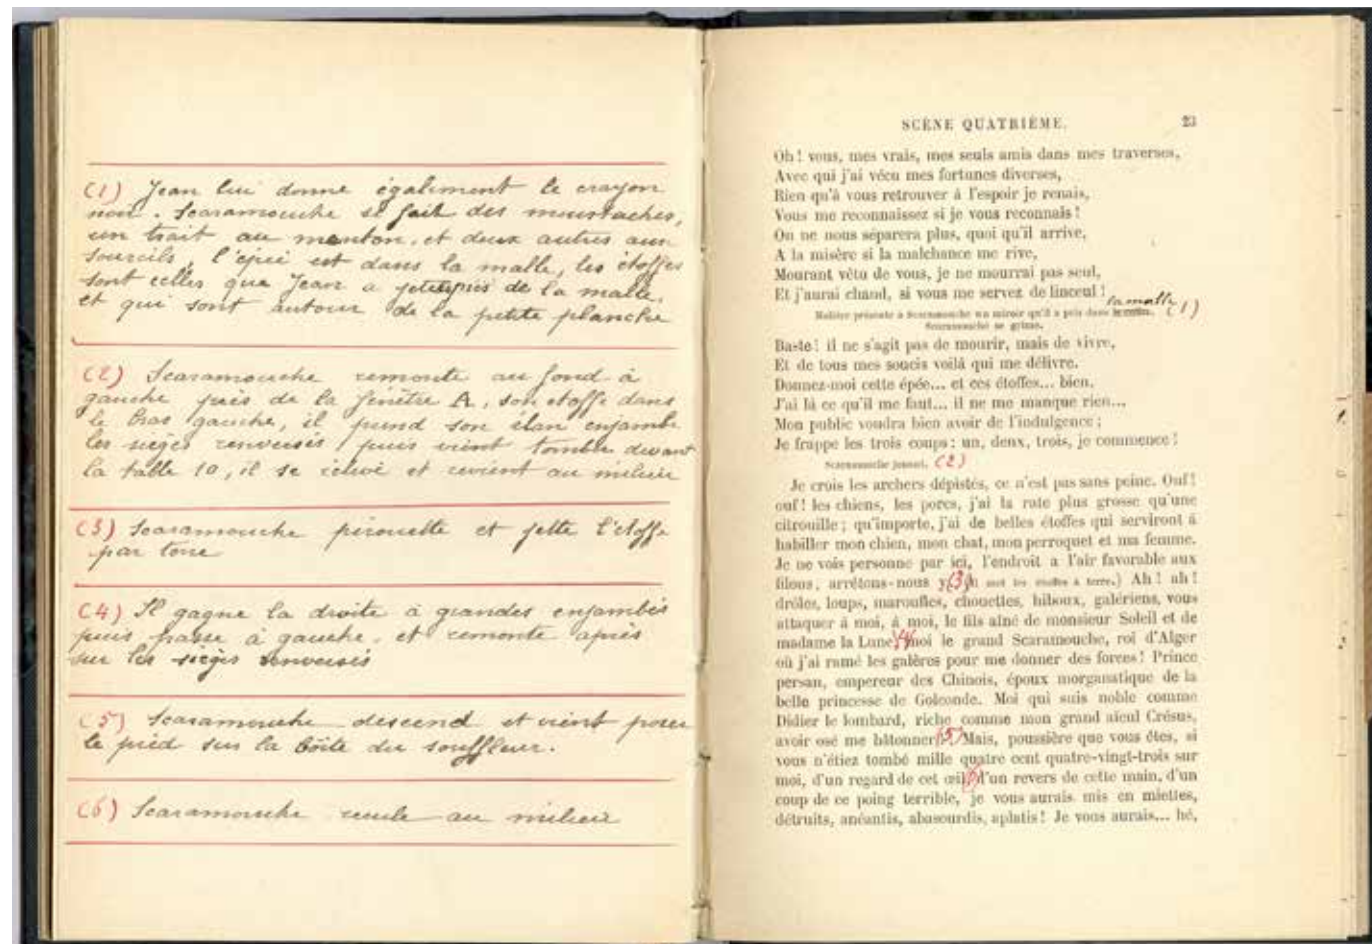 (1) Jean lui donne également le crayon
noir. Scaramouche se fait des moustaches,
un trait au menton, et deux autres aux
sourcils, l'épée est dans la malle, les étoffes
sont celles que Jean a jetées près de la malle.
et qui sont autour de la petite planche
(2) Scaramouche remonte au fond à
gauche près de la fenêtre A, son étoffe dans
le bras gauche, il prend son élan enjambe
les sièges renversés puis vient tomber devant
la table 10, il se relève et revient au milieu
(3) Scaramouche pirouette et jette l'étoffe
par terre
(4) Il gagne la droite à grandes enjambées
puis passe à gauche. et remonte après
sur les sièges renversés
(5) Scaramouche descend et vient poser
le pied sur la boîte du souffleur.
(6) Scaramouche recule au milieu
SCÈNE QUATRIÈME. 23
Oh ! vous, mes vrais, mes seuls amis dans mes traverses,
Avec qui j'ai vécu mes fortunes diverses,
Rien qu'à vous retrouver à l'espoir je renais,
Vous me reconnaissez si je vous reconnais !
On ne nous séparera plus, quoi qu'il arrive,
A la misère si la malchance me rive,
Mourant vêtu de vous, je ne mourrai pas seul,
Et j'aurai chaud, si vous me servez de linceul !
la malle
Molière présente à Scaramouche un miroir qu'il a pris dans (1)
Scaramouche se grime.
Baste ! il ne s'agit pas de mourir, mais de vivre,
Et de tous mes soucis voilà qui me délivre.
Donnez-moi cette épée... et ces étoffes... bien.
J'ai là ce qu'il me faut... il ne me manque rien...
Mon public voudra bien avoir de l'indulgence ;
Je frappe les trois coups : un, deux, trois, je commence !
Scaramouche jouant. (2)
Je crois les archers dépistés, ce n'est pas sans peine. Ouf !
ouf ! les chiens, les porcs, j'ai la rate plus grosse qu'une
citrouille ; qu'importe, j'ai de belles étoffes qui serviront à
habiller mon chien, mon chat, mon perroquet et ma femme.
Je ne vois personne par ici, l'endroit a l'air favorable aux
filous, arrêtons-nous y (3) (Il met les étoffes à terre.) Ah ! ah !
drôles, loups, maroufles, chouettes, hiboux, galériens, vous
attaquer à moi, à moi, le fils aîné de monsieur Soleil et de
madame la Lune, (4) moi le grand Scaramouche, roi d'Alger
où j'ai ramé les galères pour me donner des forces ! Prince
persan, empereur des Chinois, époux morganatique de la
belle princesse de Golconde. Moi qui suis noble comme
Didier le lombard, riche comme mon grand aïeul Crésus,
avoir osé me bâtonner (5) Mais, poussière que vous êtes, si
vous n'étiez tombé mille quatre cent quatre-vingt-trois sur
moi, d'un regard de cet œil, (6) d'un revers de cette main, d'un
coup de ce poing terrible, je vous aurais mis en miettes,
détruits, anéantis, abasourdis, aplatis ! Je vous aurais... hé,